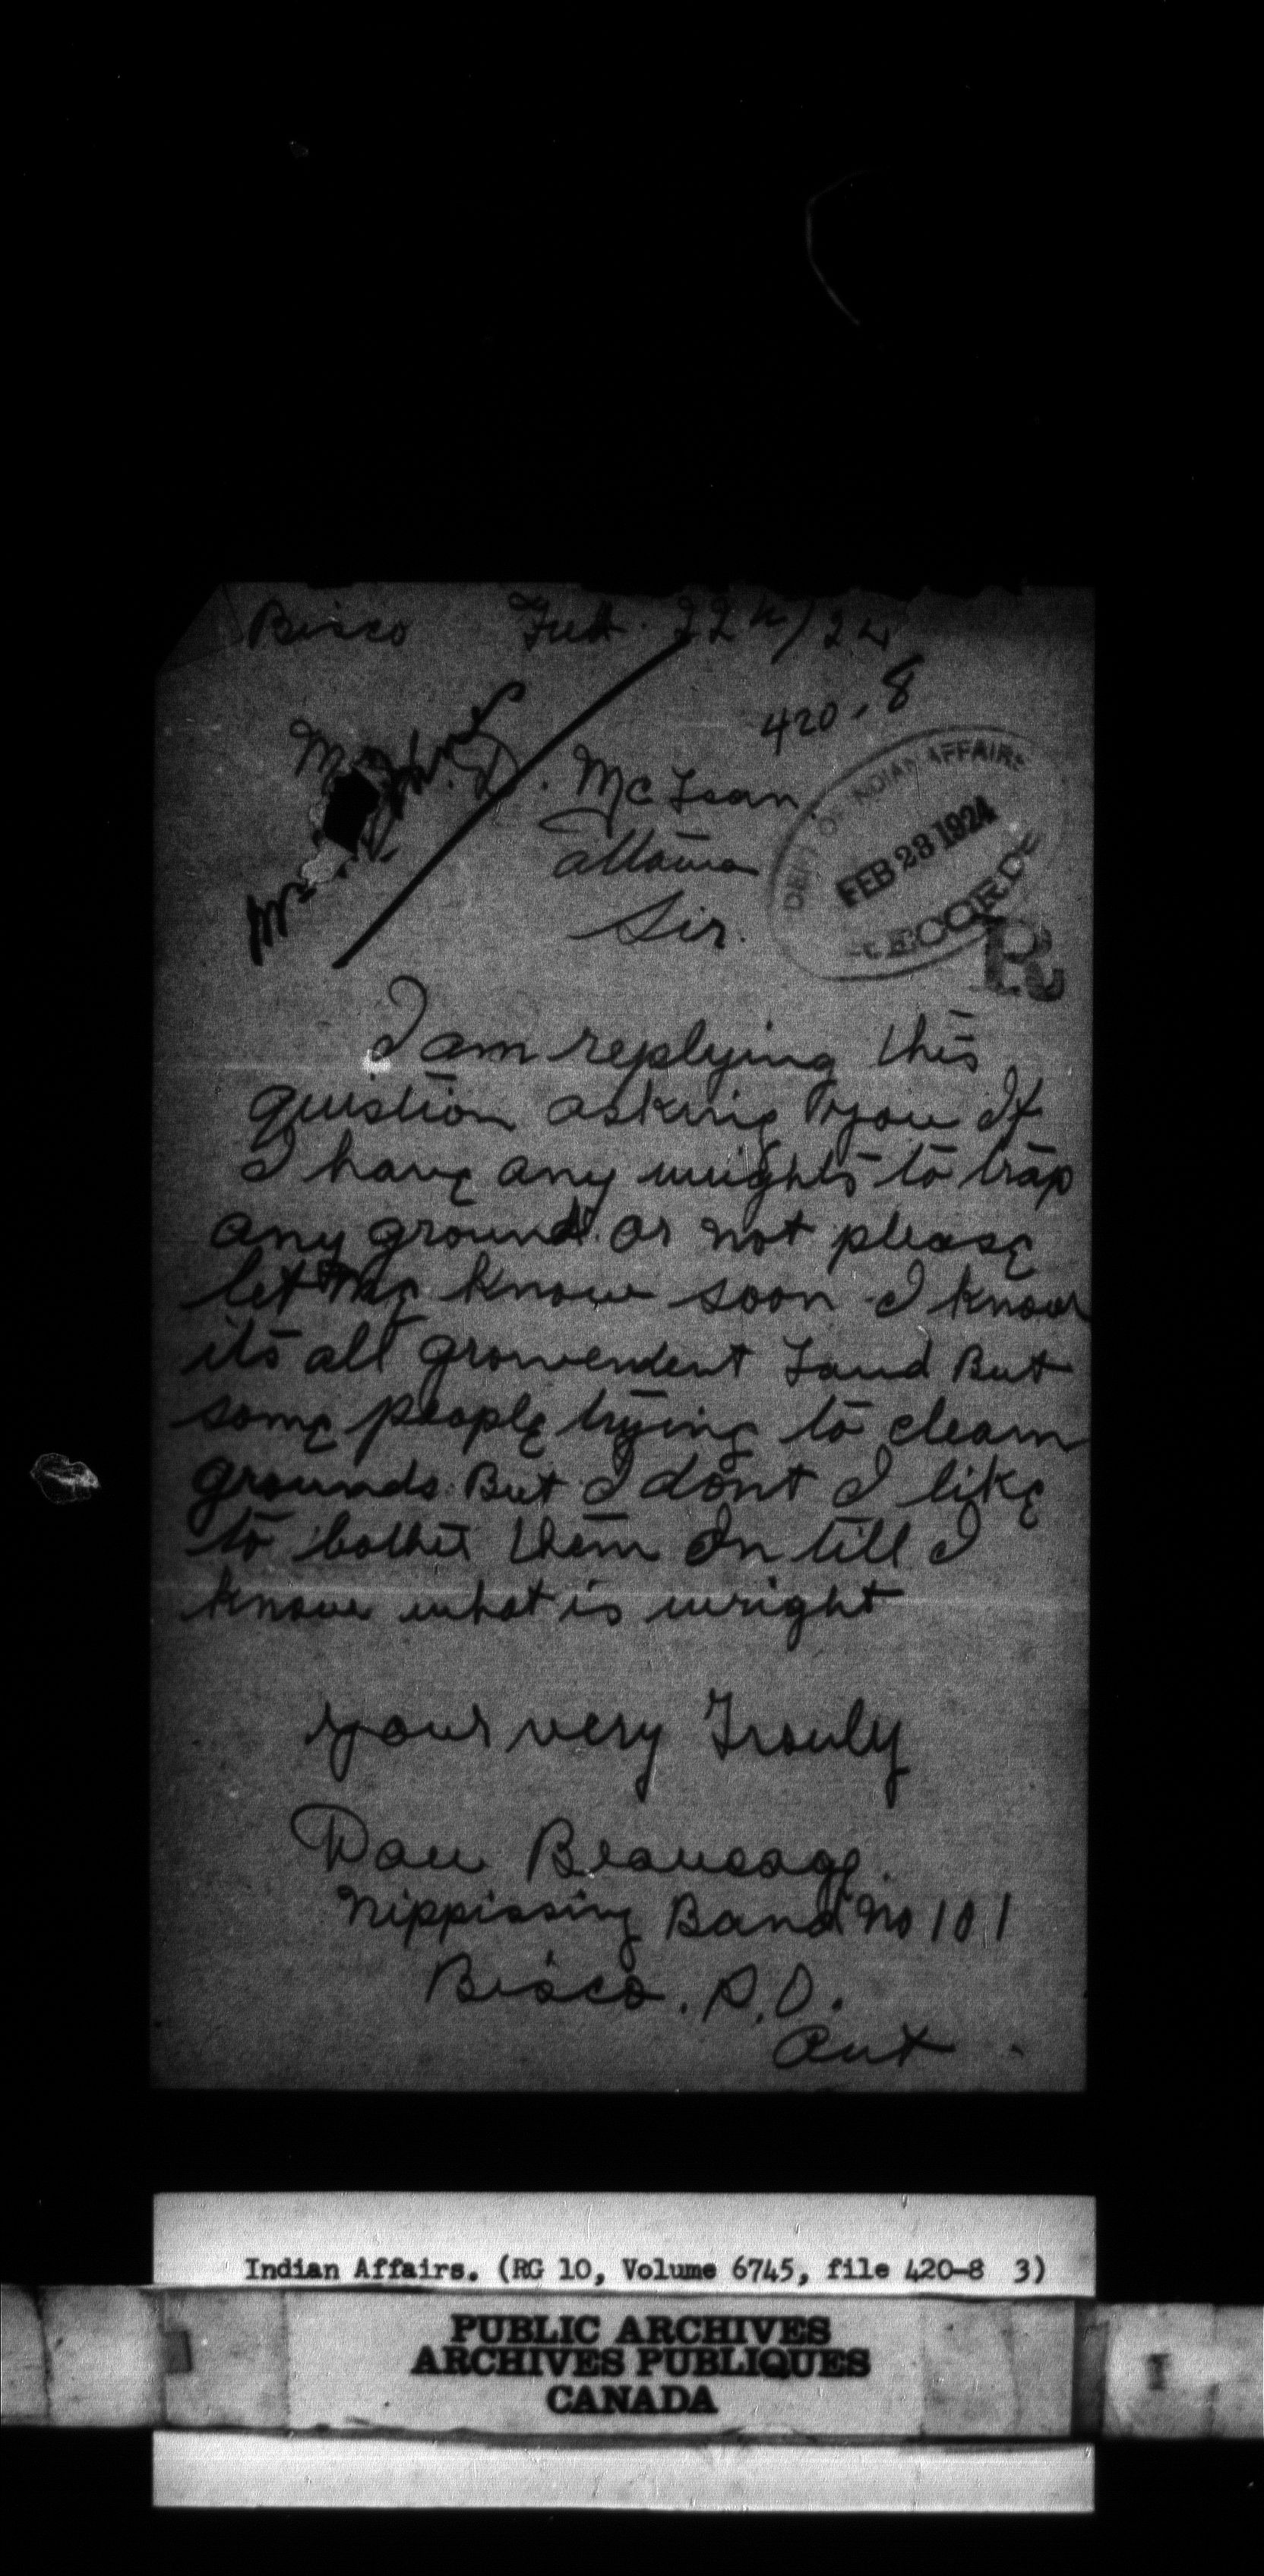 Bisco Feb. 22th/24
420-8
Mr. J. D. McLean
Ottawa
Sir.
DEPT OF INDIAN AFFAIRS
FEB 28 1924
RECORDS
R
I am replying this
quistion asking you If
I have any wrights to trap
any ground or not please
let me know soon I know
its all growendent Land But
some people trying to cleam
grounds But I dont I like
to bother them In till I
know what is wright
your very Trouly
Dan Beaucage.
Nippissing Band No 101
Bisco. P.O.
Ont.
Indian Affairs. (RG 10, Volume 6745, file 420-8 3)
PUBLIC ARCHIVES
ARCHIVES PUBLIQUES
CANADA